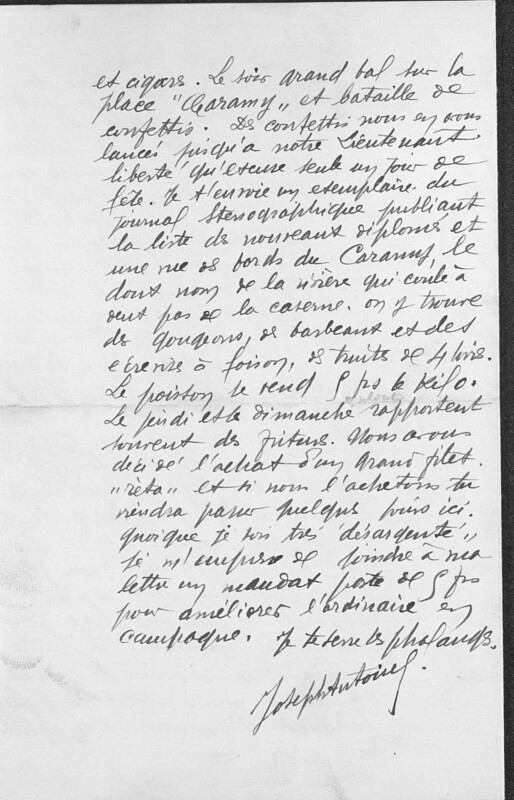 et cigares. Le soir grand bal sur la
place "Caramy" et bataille de
confettis. Des confettis nous en avons
lancés jusqu'a notre Lieutenant
liberté qu'excuse seule un jour de
fête. Je t'envoie un exemplaire du
journal stenographique publiant
la liste des nouveaux diplomés et
une vue des bords du Caramy, le
dont nom de la rivière qui coule à
cent pas de la caserne. on y trouve
des gougeons, des barbeaux et des
ecrevises à foison, des truites de 4 livres.
Le poisson se vend 5 frs le Kilo.
Le jeudi et le dimanche rapportent
souvent des fritures. Nous avons
décidé l'achat d'un grand filet
"rèta" et si nous l'achetons tu
viendra passer quelques jours ici.
quoique je sois très "désargenté"
je m'empresse de joindre à ma
lettre un mandat poste de 5 frs
pour améliorer l'ordinaire en
campagne. Je te serre les phalanges.
Joseph Antoine